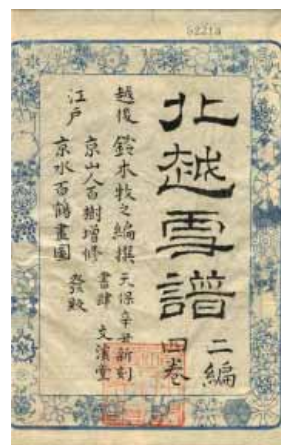 北越雪譜
二編
四巻
越後 鈴木牧之編撰
京山人百樹増修
江戸 京水百鶴畫圖
天保辛丑新刻
書肆 文溪堂
發販